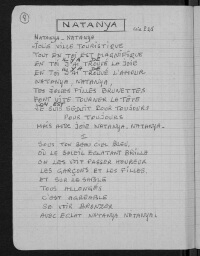 8
NATANYA
NATANYA - NATANYA
JOLIE VILLE TOURISTIQUE
TOUT EN TOI EST MAGNIFIQUE
EN TOI J'AI TROUVÉ LA JOIE
EN TOI J'AI TROUVÉ L'AMOUR
NATANYA, NATANYA,
TES JEUNES FILLES BRUNETTES
FONT VITE TOURNER LA TÊTE
SÉDUIT POUR TOUJOURS
POUR TOUJOURS
MAIS AVEC JOIE NATANYA, NATANYA.
SOUS TON BEAU CIEL BLEU,
OÙ LE SOLEIL ÉCLATANT BRILLE
ON LES VOIT PASSER HEUREUX
LES GARÇONS ET LES FILLES.
ET SUR LE SABLE
TOUS ALLONGÉS
C'EST AGRÉABLE
SE VOIR BRONZER
AVEC ECLAT NATANYA NATANYA!